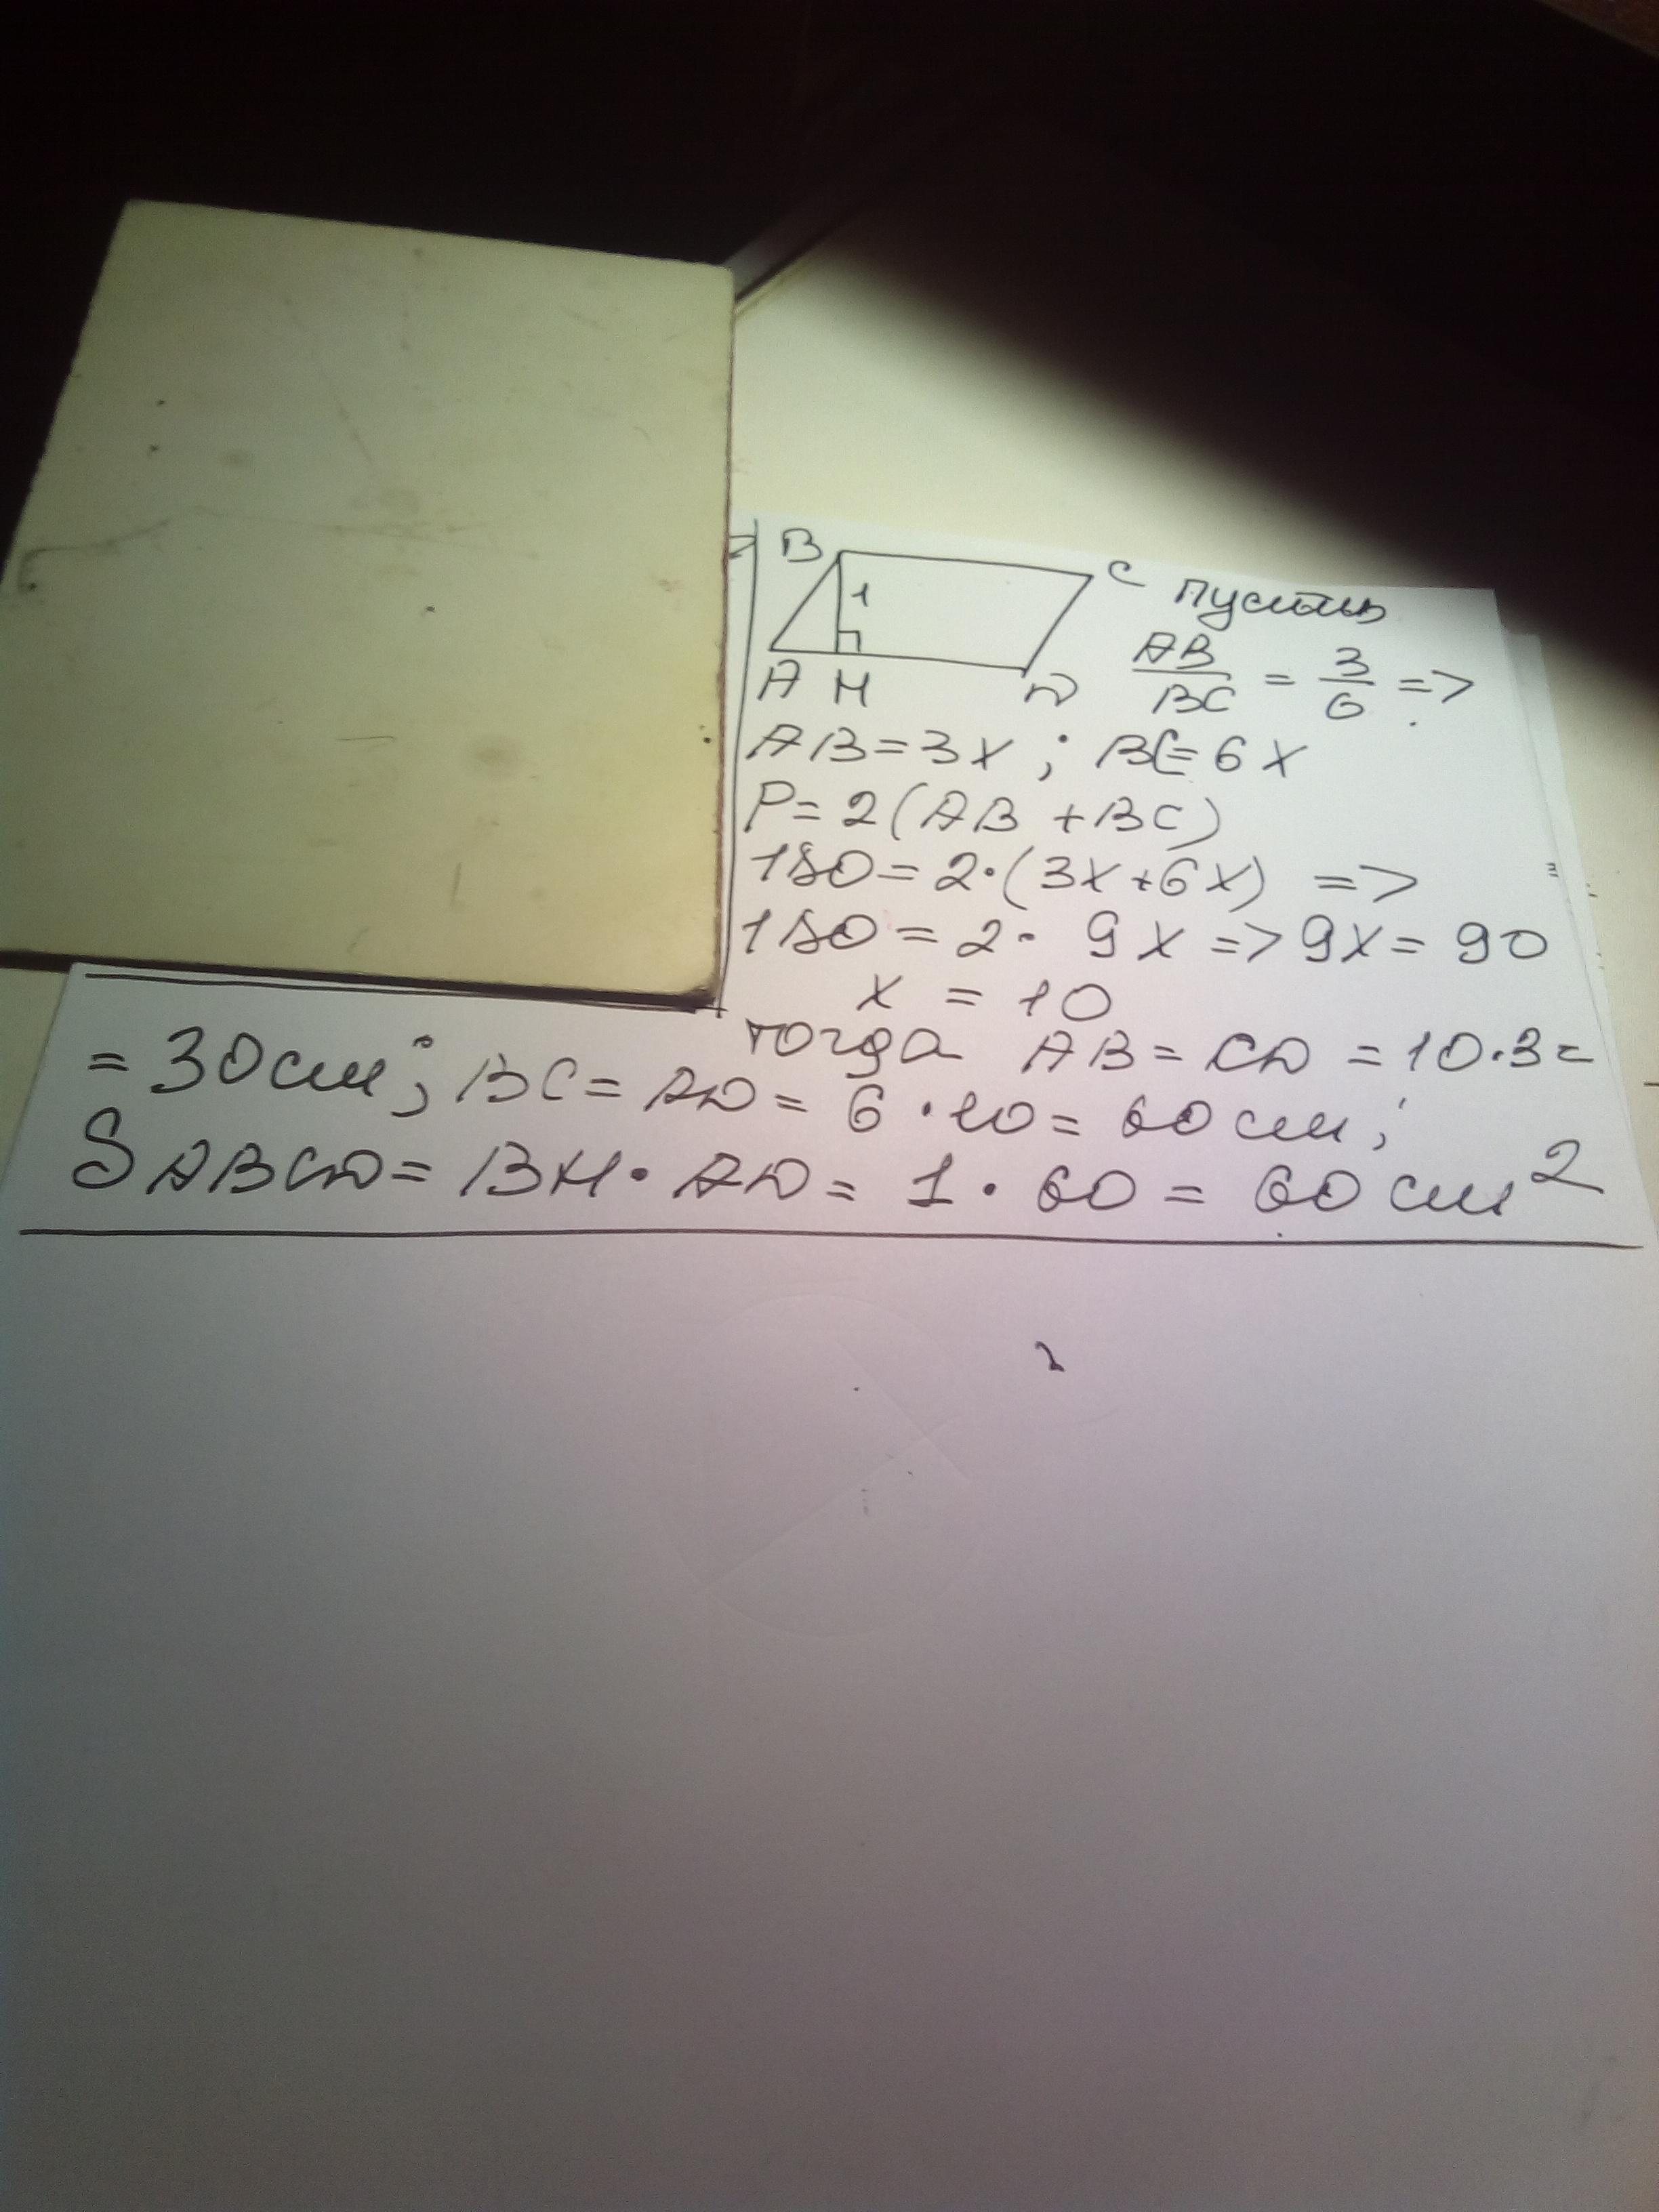 B C Пусть
1
A H D AB/BC = 3/6 =>
AB = 3x ; BC = 6x
P = 2(AB + BC)
180 = 2·(3x+6x) =>
180 = 2· 9x => 9x = 90
x = 10
тогда AB = CD = 10·3 =
= 30 см; BC = AD = 6·10 = 60 см;
SABCD = BH·AD = 1·60 = 60 см²